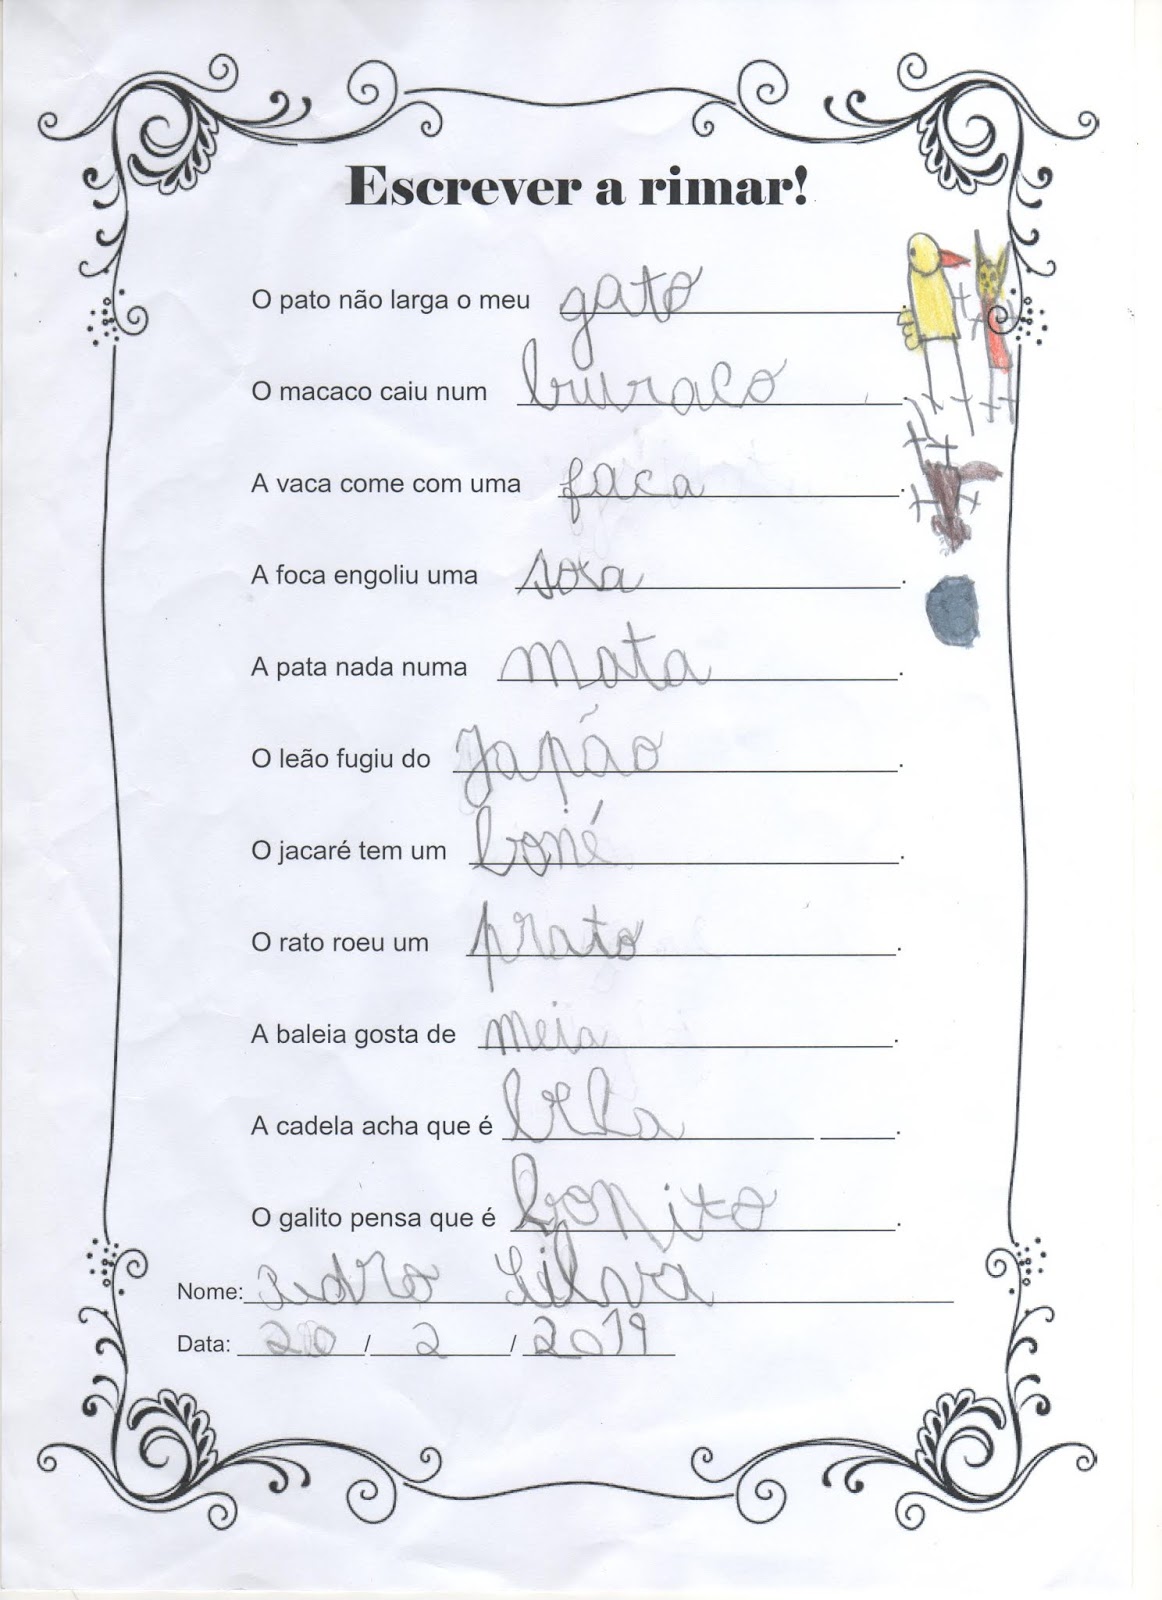 Escrever a rimar!
O pato não larga o meu gato.
O macaco caiu num buraco.
A vaca come com uma faca.
A foca engoliu uma soca.
A pata nada numa mata.
O leão fugiu do Japão.
O jacaré tem um boné.
O rato roeu um prato.
A baleia gosta de meia.
A cadela acha que é
O galito pensa que é bonito.
Nome: Silva
Data: 20 / 2 / 2019